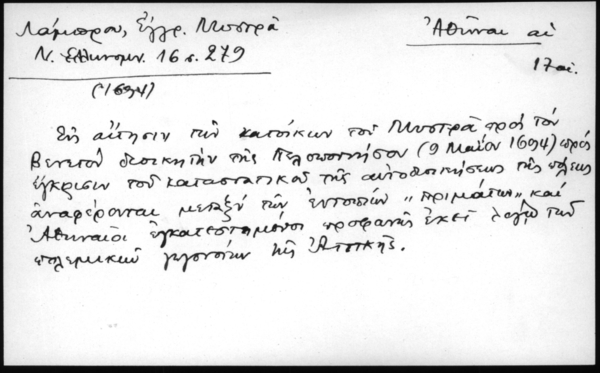 Λάμπρου, Ἔγγρ. Μυστρᾶ
Ἀθῆναι αἱ
Ν. Ἑλληνομν. 16 σ. 279
17 αἰ.
(1694)
Εἰς αἴτησιν τῶν κατοίκων τοῦ Μυστρᾶ πρὸς τὸν
Βενετὸν διοικητὴν τῆς Πελοποννήσου (9 Μαΐου 1694) πρὸς
ἔγκρισιν τοῦ καταστατικοῦ τῆς αὐτοδιοικήσεως τῆς πόλεως
ἀναφέρονται μεταξὺ τῶν ἐντοπίων „πριμάτων" καὶ
Ἀθηναῖοι ἐγκατεστημένοι προφανῶς ἐκεῖ λόγῳ τῶν
πολεμικῶν γεγονότων τῆς Ἀττικῆς.